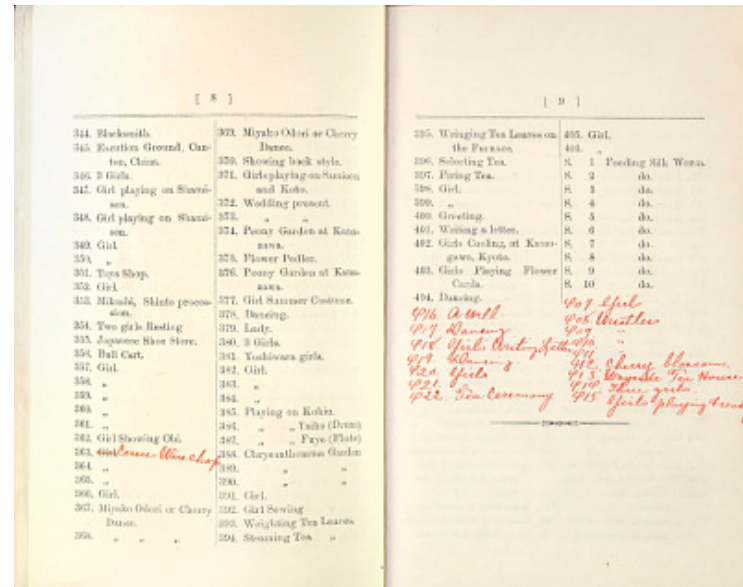 [ 8 ]
344. Blacksmith.
345. Execution Ground, Can-
ton, China.
346. 3 Girls.
347. Girl playing on Shami-
sen.
348. Girl playing on Shami-
sen.
349. Girl.
350. „
351. Toys Shop.
352. Girl.
353. Mikoshi, Shinto proces-
sion.
354. Two girls Resting
355. Japanese Shoe Store.
356. Bull Cart.
357. Girl.
358. „
359. „
360. „
361. „
362. Girl Showing Obi.
363. Wine shop
364. „
365. „
366. Girl.
367. Miyako Odori or Cherry
Dance.
368. „ „ „
369. Miyako Odori or Cherry
Dance.
370. Showing back style.
371. Girls playing on Samisen
and Koto.
372. Wedding present.
373. „ „
374. Peony Garden at Kana-
gawa.
375. Flower Pedler.
376. Peony Garden at Kana-
gawa.
377. Girl Summer Costume.
378. Dancing.
379. Lady.
380. 3 Girls.
381. Yoshiwara girls.
382. Girl.
383. „
384. „
385. Playing on Kokiu.
386. „ „ (Drum)
387. „ „ Fuye (Flute)
388. Chrysanthemum Garden
389. „ „
390. „ „
391. Girl.
392. Girl Sewing
393. Weighting Tea Leaves
394. Steaming Tea „
[ 9 ]
395. Wringing Tea Leaves on
the Furnace.
396. Selecting Tea.
397. Firing Tea.
398. Girl.
399. „
400. Greeting.
401. Writing a letter.
402. Girls Cooling, at Kamo-
gawa, Kyoto.
403. Girls Playing Flower
Cards.
404. Dancing.
405. Girl.
406. „
S. 1 Feeding Silk Worm.
S. 2 do.
S. 3 do.
S. 4 do.
S. 5 do.
S. 6 do.
S. 7 do.
S. 8 do.
S. 9 do.
S. 10 do.
407 Girl
408 Wrestlers
409 "
410 "
411 "
412 Cherry blossom
413 Wayside Tea House
414 Three girls
415 Girls playing
416 A well
417 Dancing
418 Girls Writing Letter
419 Dancing
420 Girls
421
422 Tea Ceremony